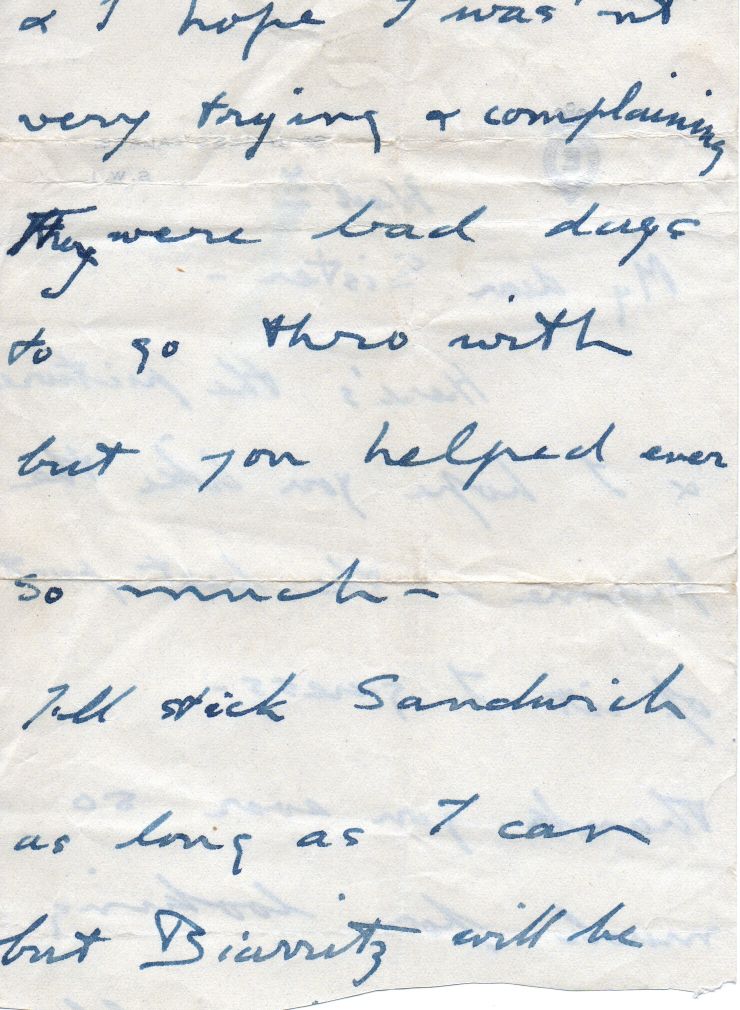 & I hope I was'nt
very trying & complaining
They were bad days
to go thro with
but you helped ever
so much –
I'll stick Sandwich
as long as I can
but Biarritz will be